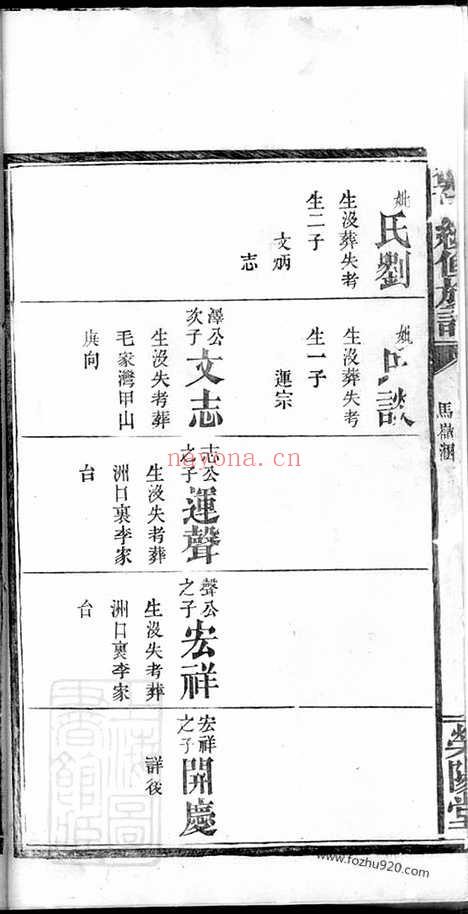 續修族譜
馬嶽湖
滎陽堂
妣
氏劉
生没葬失考
生二子
文炳
志
妣
氏談
生没葬失考
生一子
運宗
澤公
次子
文志
生没失考葬
毛家灣甲山
庚向
志公
之子
運聲
生没失考葬
洲口裏李家
台
聲公
之子
宏祥
生没失考葬
洲口裏李家
台
宏祥
之子
開慶
詳後
nayona.cn
www.fozhu920.com